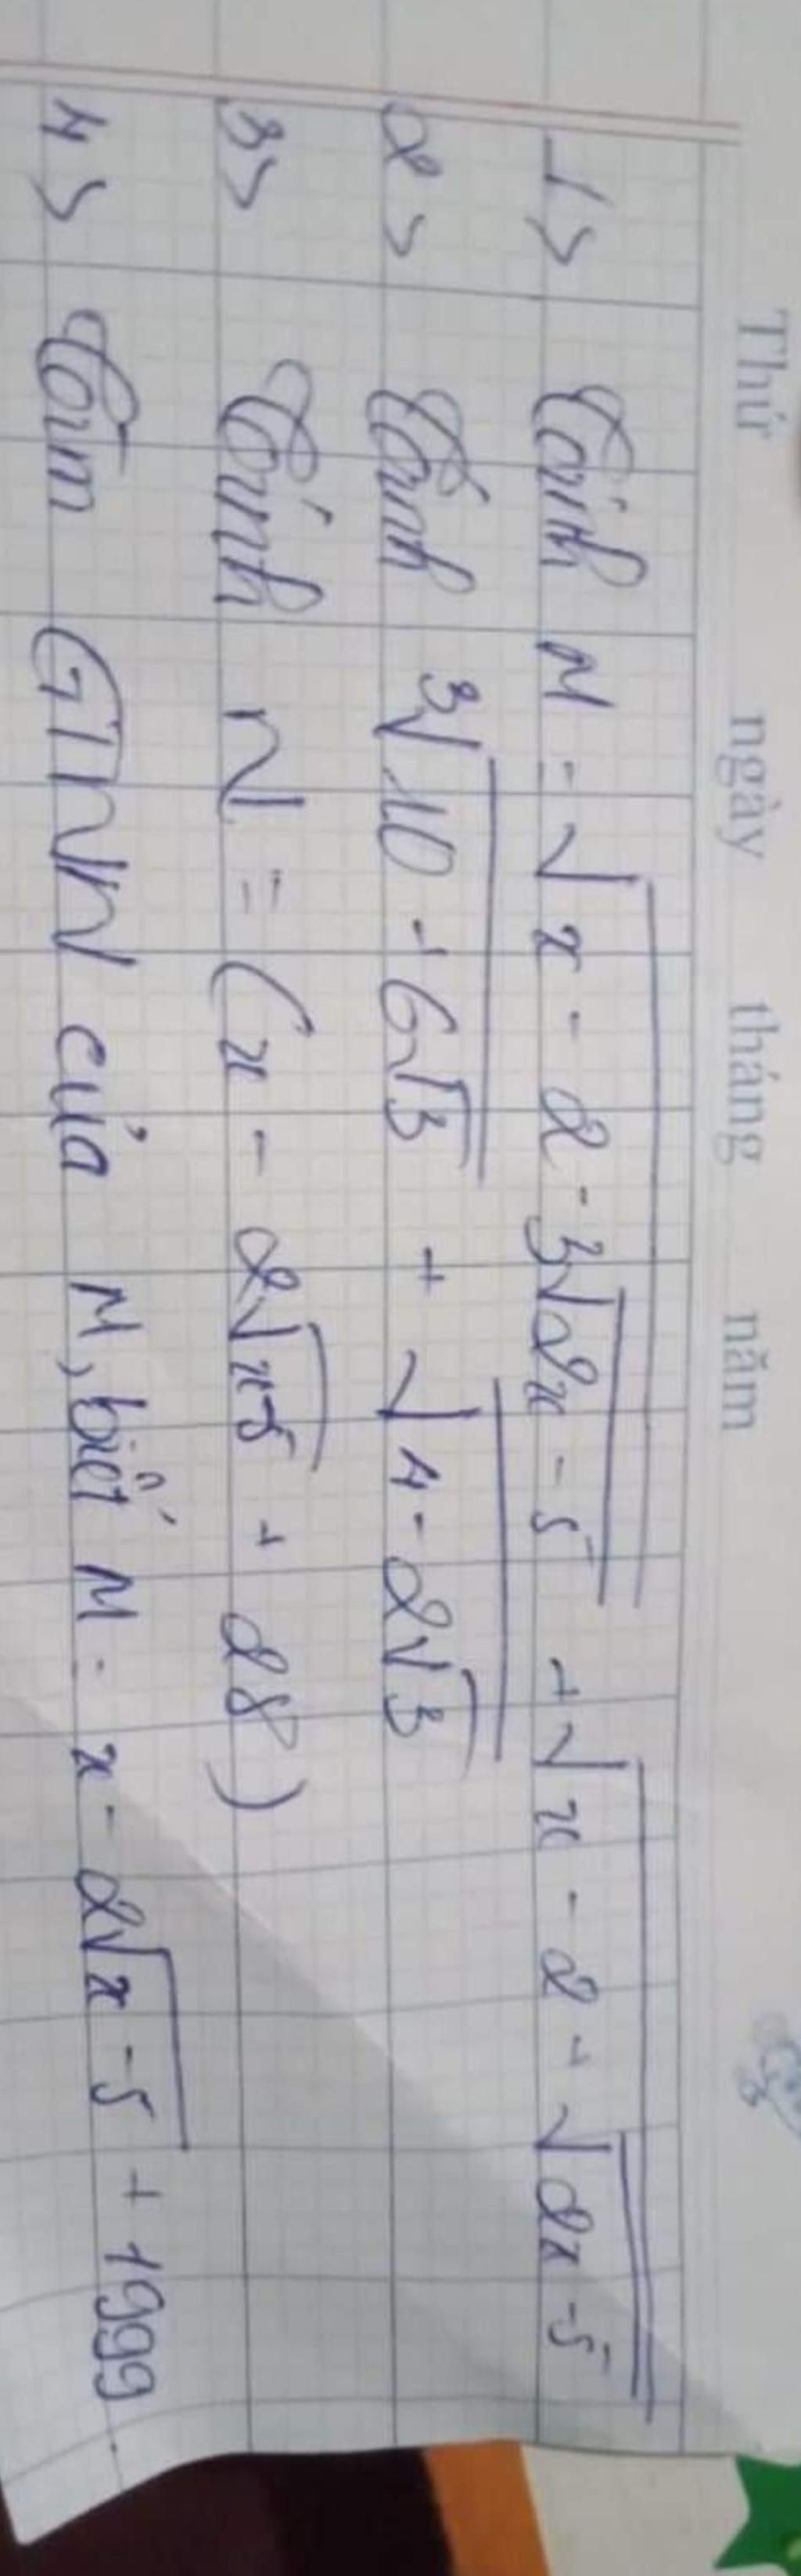 Thứ ngày tháng năm
1> Tính M = √(x - 2 - 3√(2x - 5)) + √(x - 2 + √(2x - 5))
2> Tính ³√(10 + 6√3) + √(4 - 2√3)
3> Tính N = (x - 2√(x-5) + 28)
4> Tìm GTNN của M, biết M = x - 2√(x - 5) + 1999